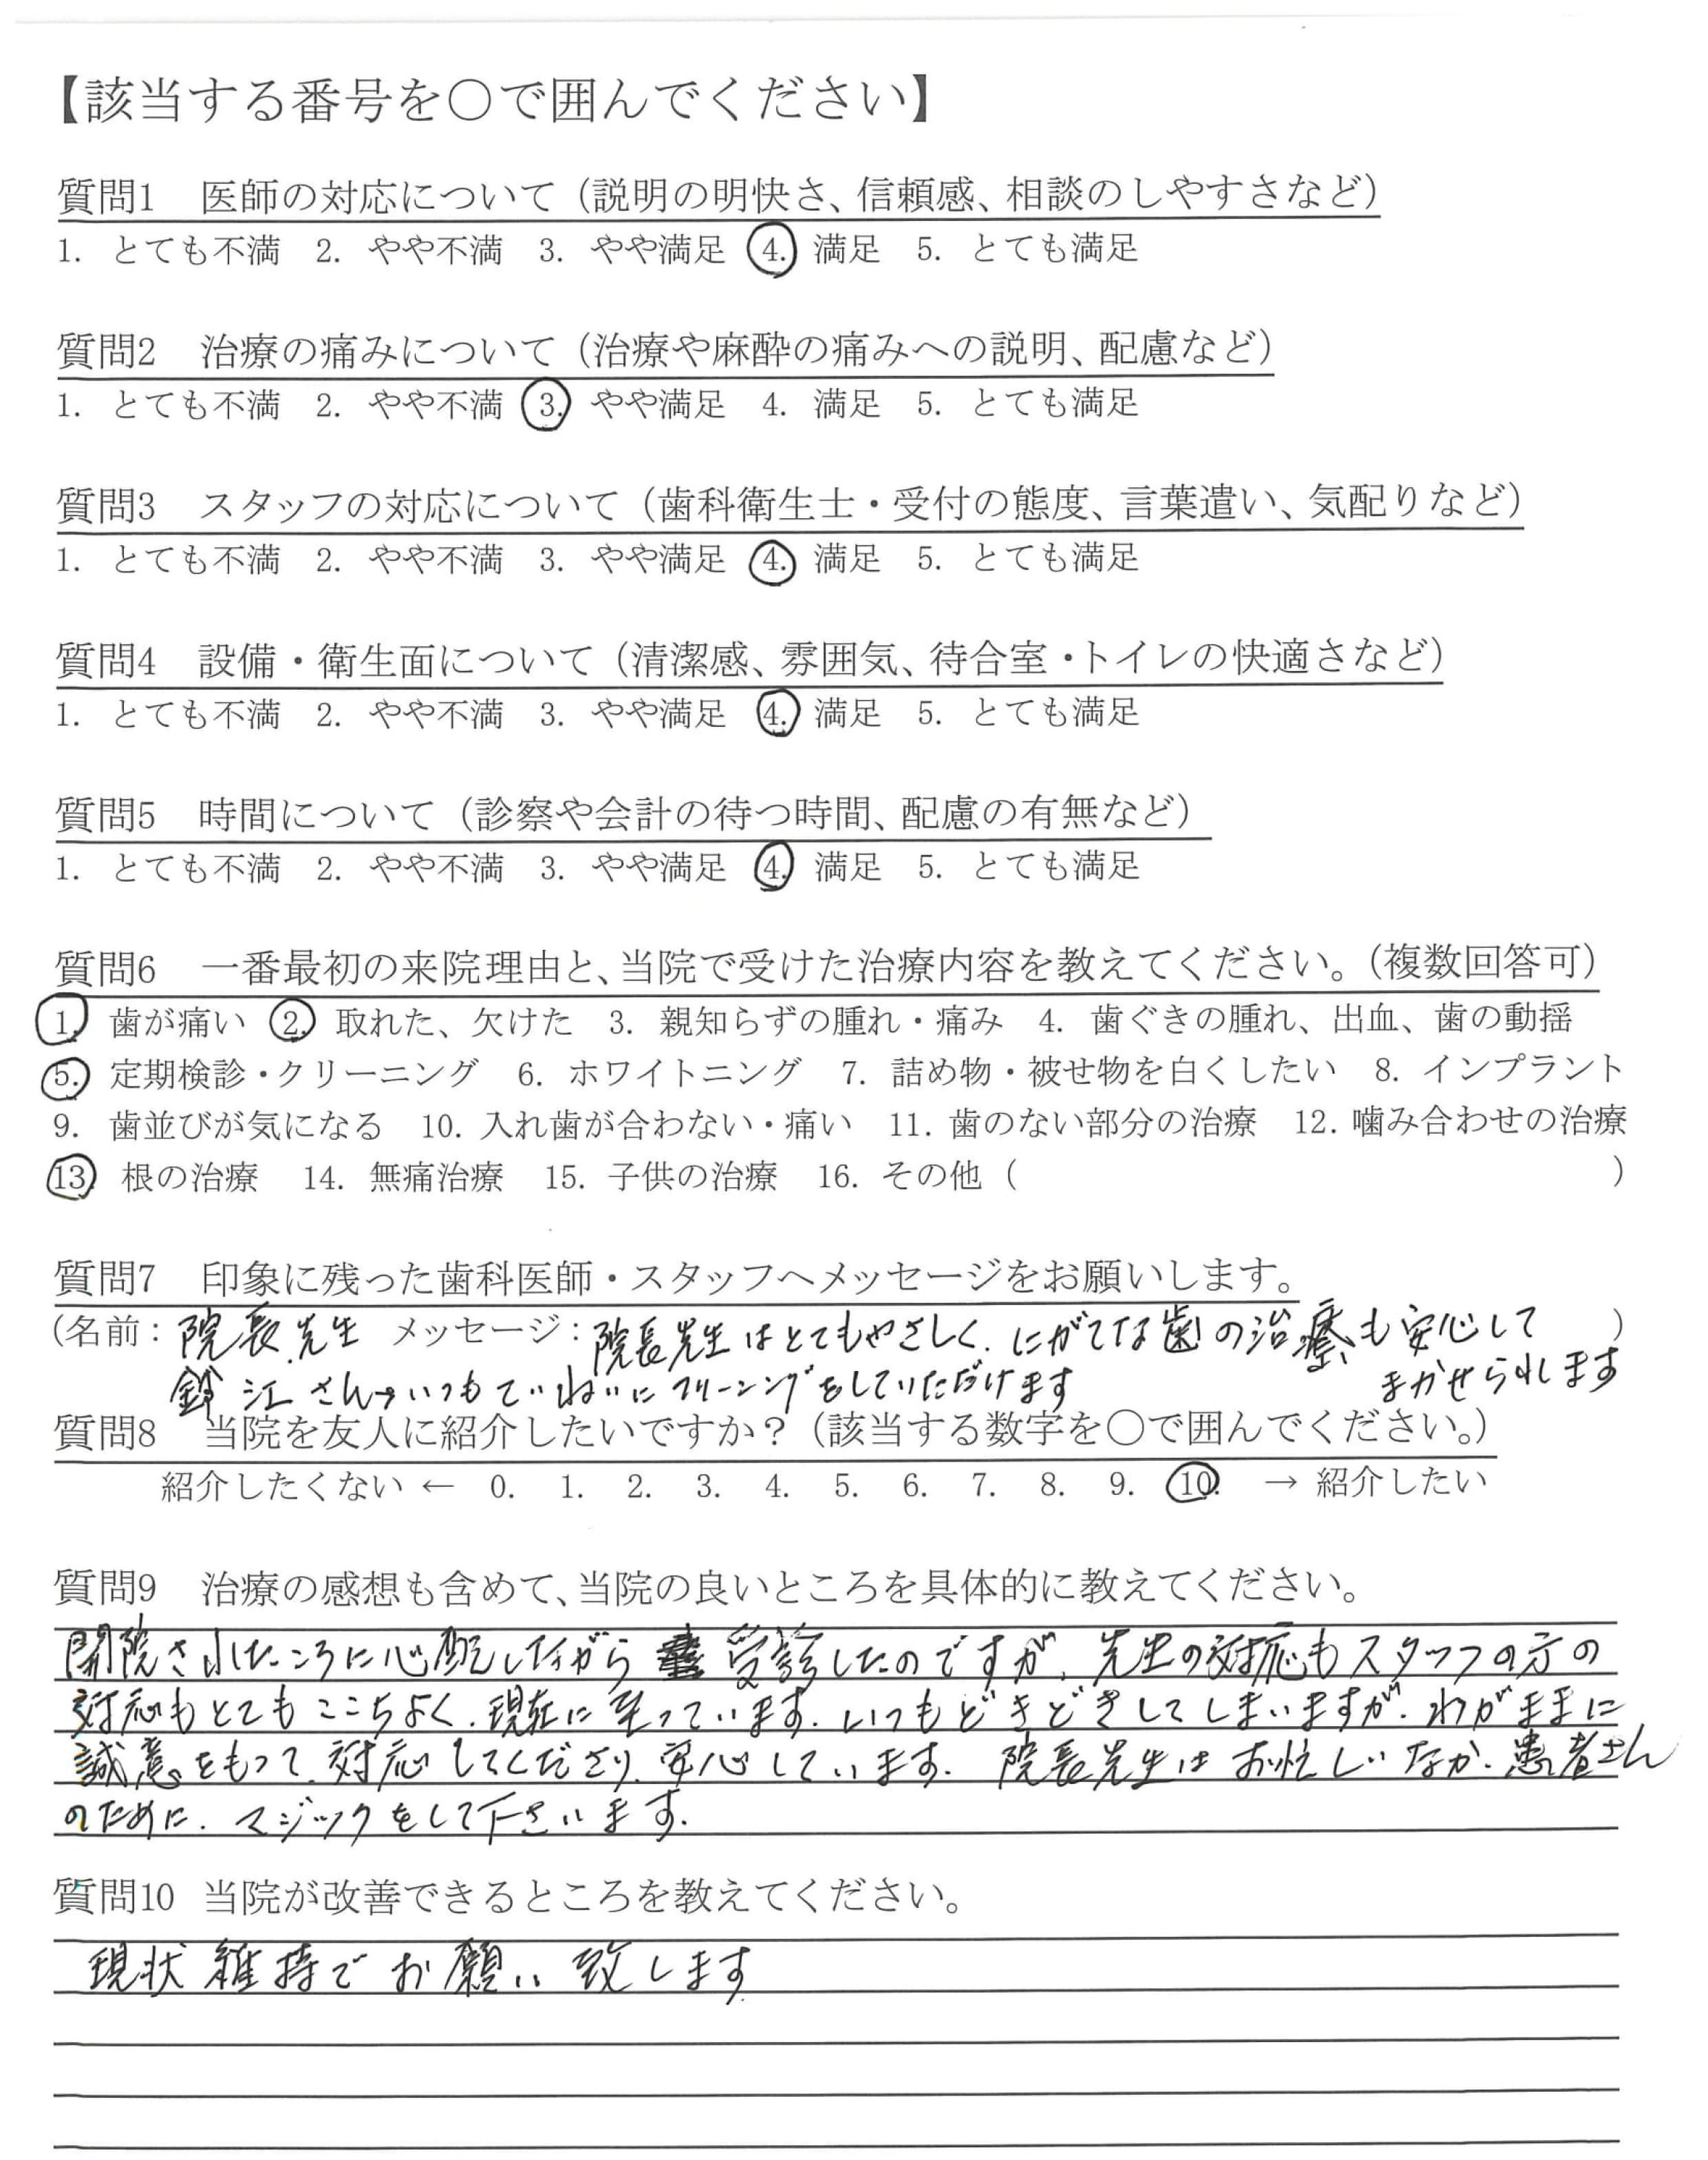 【該当する番号を○で囲んでください】
質問1 医師の対応について（説明の明快さ、信頼感、相談のしやすさなど）
1. とても不満 2. やや不満 3. やや満足 4. 満足 5. とても満足
質問2 治療の痛みについて（治療や麻酔の痛みへの説明、配慮など）
1. とても不満 2. やや不満 3. やや満足 4. 満足 5. とても満足
質問3 スタッフの対応について（歯科衛生士・受付の態度、言葉遣い、気配りなど）
1. とても不満 2. やや不満 3. やや満足 4. 満足 5. とても満足
質問4 設備・衛生面について（清潔感、雰囲気、待合室・トイレの快適さなど）
1. とても不満 2. やや不満 3. やや満足 4. 満足 5. とても満足
質問5 時間について（診察や会計の待つ時間、配慮の有無など）
1. とても不満 2. やや不満 3. やや満足 4. 満足 5. とても満足
質問6 一番最初の来院理由と、当院で受けた治療内容を教えてください。（複数回答可）
1. 歯が痛い 2. 取れた、欠けた 3. 親知らずの腫れ・痛み 4. 歯ぐきの腫れ、出血、歯の動揺
5. 定期検診・クリーニング 6. ホワイトニング 7. 詰め物・被せ物を白くしたい 8. インプラント
9. 歯並びが気になる 10. 入れ歯が合わない・痛い 11. 歯のない部分の治療 12. 噛み合わせの治療
13. 根の治療 14. 無痛治療 15. 子供の治療 16. その他（ ）
質問7 印象に残った歯科医師・スタッフへメッセージをお願いします。
（名前：院長先生 メッセージ：院長先生はとてもやさしく、にがてな歯の治療も安心して ）
まかせられします
江さん→いつもていねいにクリーニングをしていただけます
質問8 当院を友人に紹介したいですか？（該当する数字を○で囲んでください。）
紹介したくない ← 0. 1. 2. 3. 4. 5. 6. 7. 8. 9. 10. → 紹介したい
質問9 治療の感想も含めて、当院の良いところを具体的に教えてください。
開院されたころに心配しながら受診したのですが、先生の対応もスタッフの方の
対応もとてもここちよく、現在に至っています。いつもどきどきしてしまいますが、わがままに
誠意をもって、対応してくださり、安心しています。 院長先生はお忙しいなか、患者さん
のために、マジックをして下さいます。
質問10 当院が改善できるところを教えてください。
現状維持でお願い致します